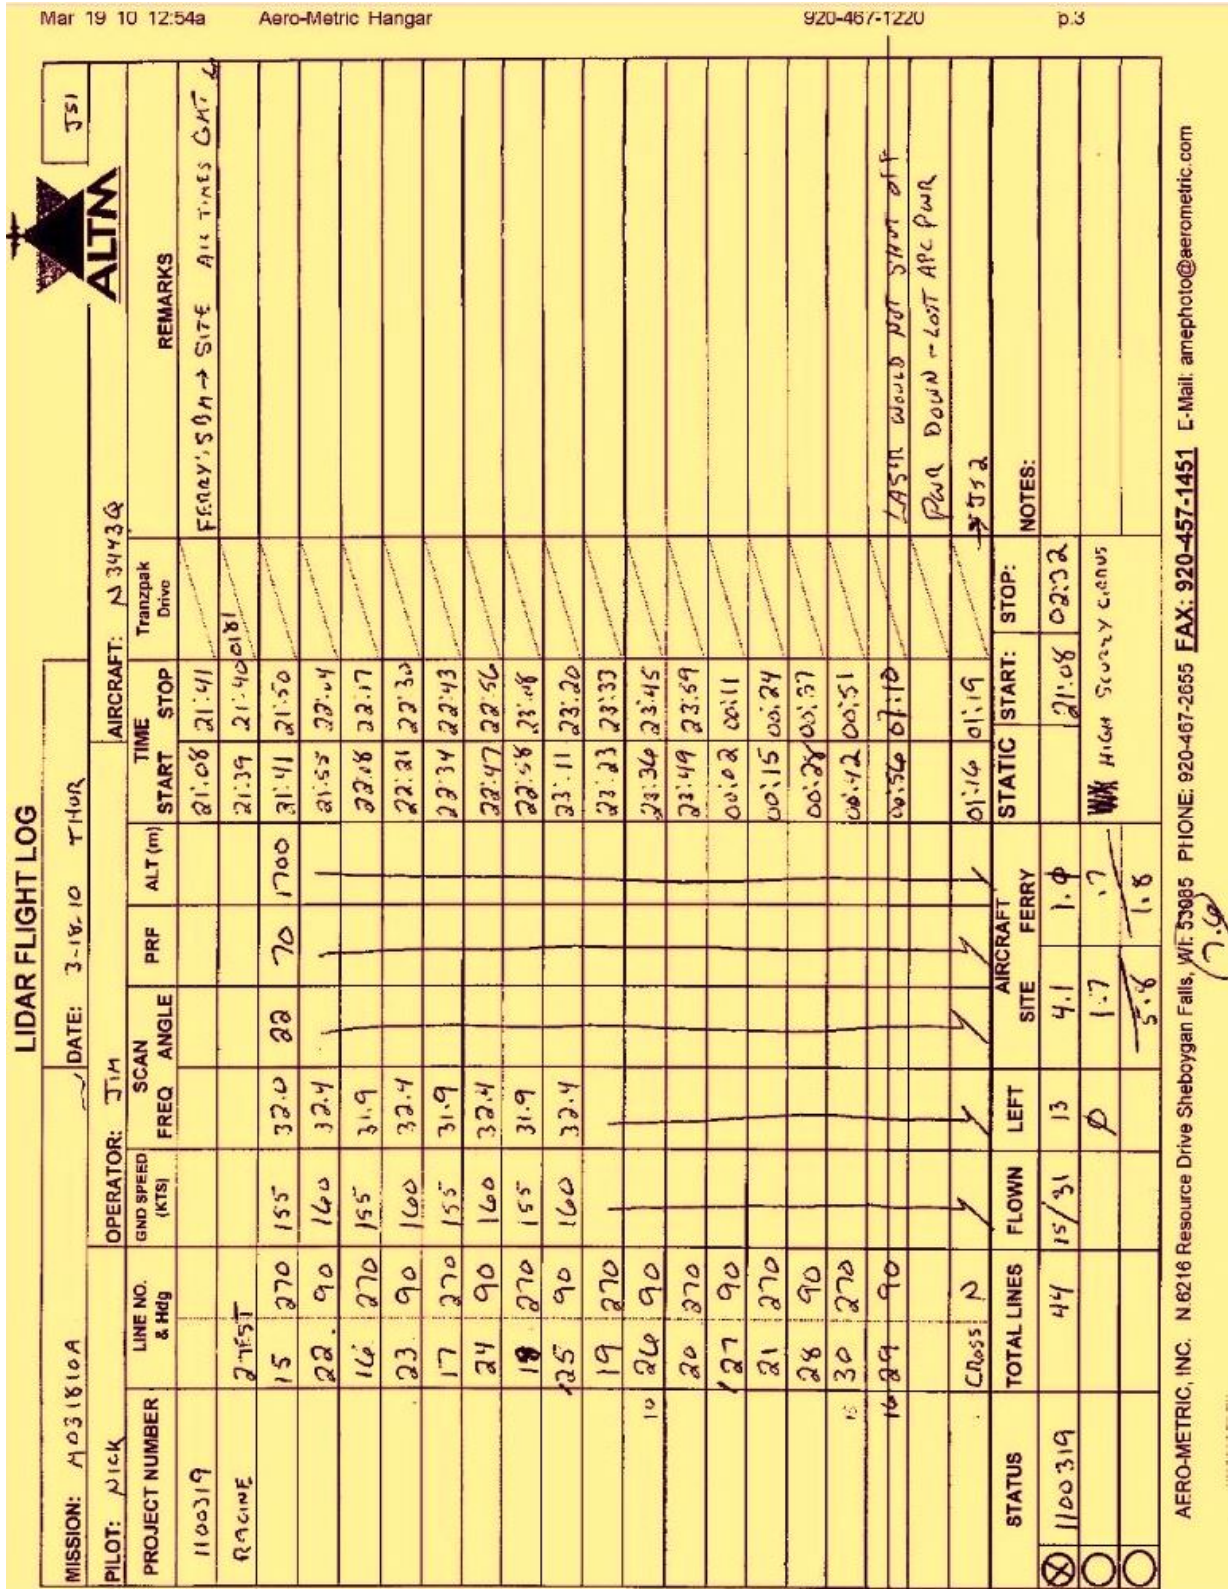 Mar 19 10 12:54a Aero-Metric Hangar 920-467-1220 p.3
LIDAR FLIGHT LOG
JS1
ALTM
MISSION: M031810A DATE: 3-18-10 THUR
PILOT: NICK OPERATOR: JIM AIRCRAFT: N3443Q
PROJECT NUMBER LINE NO. & Hdg GND SPEED (KTS) SCAN FREQ ANGLE PRF ALT (m) TIME START STOP Tranzpak Drive REMARKS
1100319 21:08 21:41 FERRY: SBM → SITE ALL TIMES GMT
RACINE 2TEST 21:39 21:40 0181
15 270 155 32.0 22 70 1700 21:41 21:50
22 90 160 32.4 21:55 22:04
16 270 155 31.9 22:08 22:17
23 90 160 32.4 22:21 22:30
17 270 155 31.9 22:34 22:43
24 90 160 32.4 22:47 22:56
18 270 155 31.9 22:58 23:08
25 90 160 32.4 23:11 23:20
19 270 23:23 23:33
10 26 90 23:36 23:45
20 270 23:49 23:59
27 90 00:02 00:11
21 270 00:15 00:24
28 90 00:28 00:37
15 30 270 00:42 00:51
16 29 90 00:56 01:10 LASER WOULD NOT SHUT OFF
PWR DOWN - LOST APC PWR
CROSS N 01:16 01:19 → JS2
STATUS TOTAL LINES FLOWN LEFT AIRCRAFT SITE FERRY STATIC START: STOP: NOTES:
1100319 44 15/31 13 4.1 1.0 21:08 02:32
0 1.7 .7 WX HIGH SCUZZY CIRRUS
5.8 1.8
7.6
AERO-METRIC, INC. N.6216 Resource Drive Sheboygan Falls, WI. 53085 PHONE: 920-467-2655 FAX: 920-457-1451 E-Mail: amephoto@aerometric.com